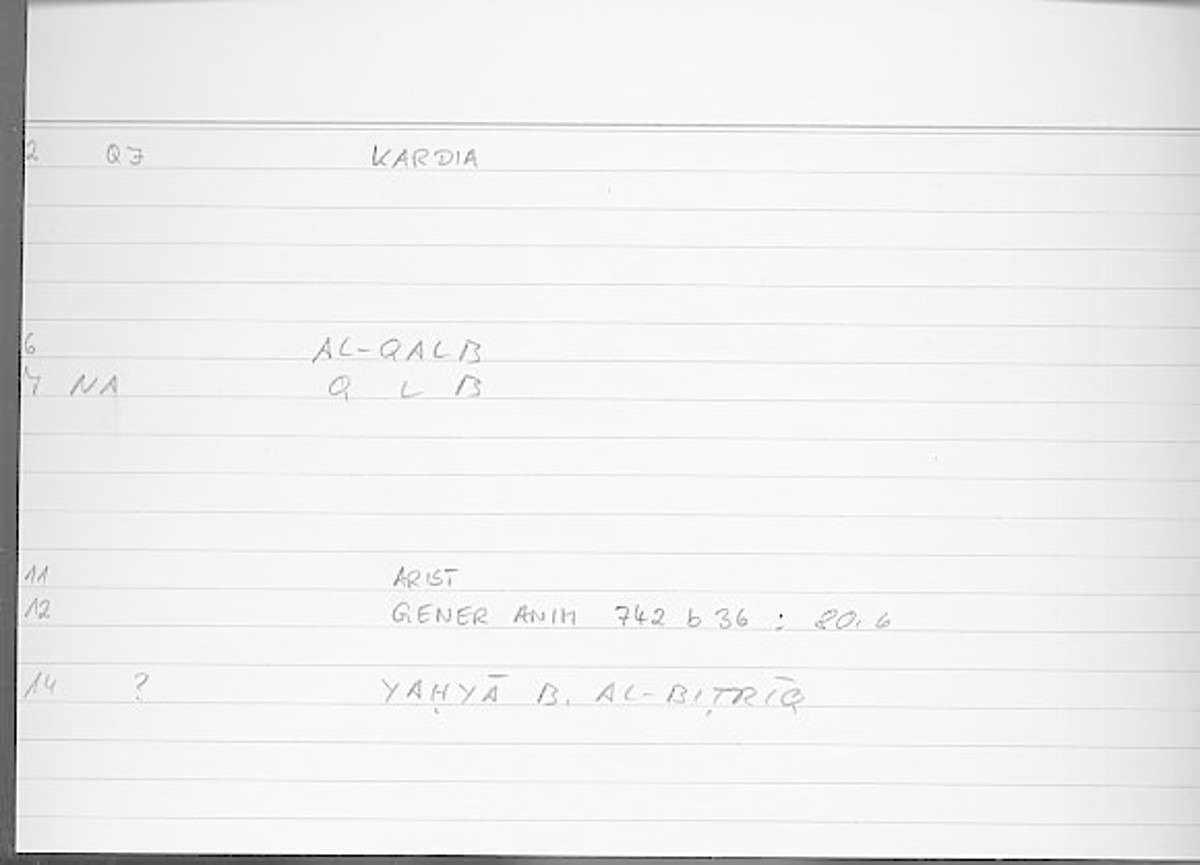 2 QJ KARDIA
6 AL-QALB
7 NA Q L B
11 ARIST
12 GENER ANIM 742 b 36 : 80.6
14 ? YAḤYĀ B. AL-BIṬRĪQ